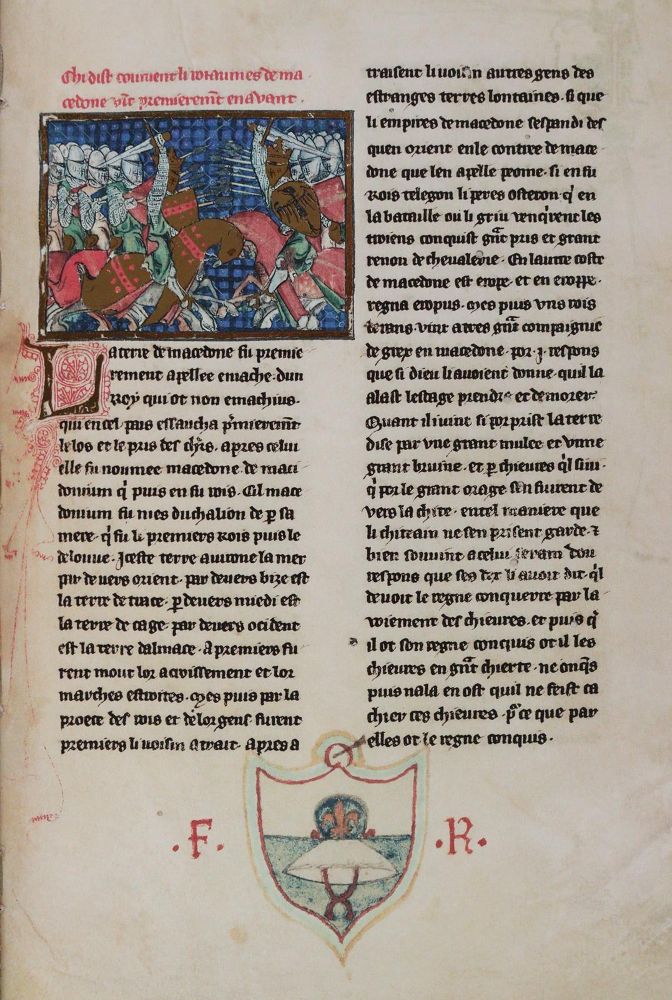 Chi dist coument li roiaumes de ma
cedone vīt premierem̄t en auant.
La terre de macedone fu premie
rement apellee emache. dun
Roy qui ot non emachius.
qui en cel pais essaucha p̄mierem̄t
le los et le pris des ch̄rs. apres celui
elle fu noumee macedone. de maci
donium q̄ puis en fu rois. Cil mace
donium fu mes duchalion de p sa
mere. q̄ fu li premiers rois puis le
delouue. Iceste terre auirone la mer
par deuers orient. par deuers bize est
la terre de trace. p deuers miedi est
la terre de cage. par deuers ocident
est la terre dalmace. A premiers fu
rent mout lor acroissement et lor
marches estroites. mes puis par la
proece des rois et de lor gens furent
premiers li uoisin atrait. Apres a
traisent li uoisin autres gens des
estranges terres lontaines. si que
li empires de macedone sespandi des
quen orient en le contree de mace
done que len apelle peome. si en fu
Rois telegon li peres osteron q̄ en
la bataille ou li griu uenq̄rent les
troiens conquist gn̄t pris et grant
renon de cheualerie. En lautre coste
de macedone est erope. et en eroppe.
regna eropus. mes puis uns rois
uint a tres gn̄t compaignie
de grex en macedone. por .i. respons
que si dieu li auoient donne. quil la
alast lestage prendre et demorer.
Quant il i uint si porprist la terre
dise par une grant mulee et une
grant bruine. et p chieures q̄l siui
q̄ por le grant orage sen fuirent de
uers la chite. en tel maniere que
li chiteain ne sen prisent garde. 7
bien souuint a celui don
respons que ses dex li auoit dit. q̄l
deuoit le regne conquerre par la
uoiement des chieures. et puis q̄
il ot son regne conquis ot il les
chieures en gn̄t chierte. ne onq̄s
puis nala en ost quil ne feist ca
chier ces chieures. p̄ ce que par
elles ot le regne conquis.
.F. .R.